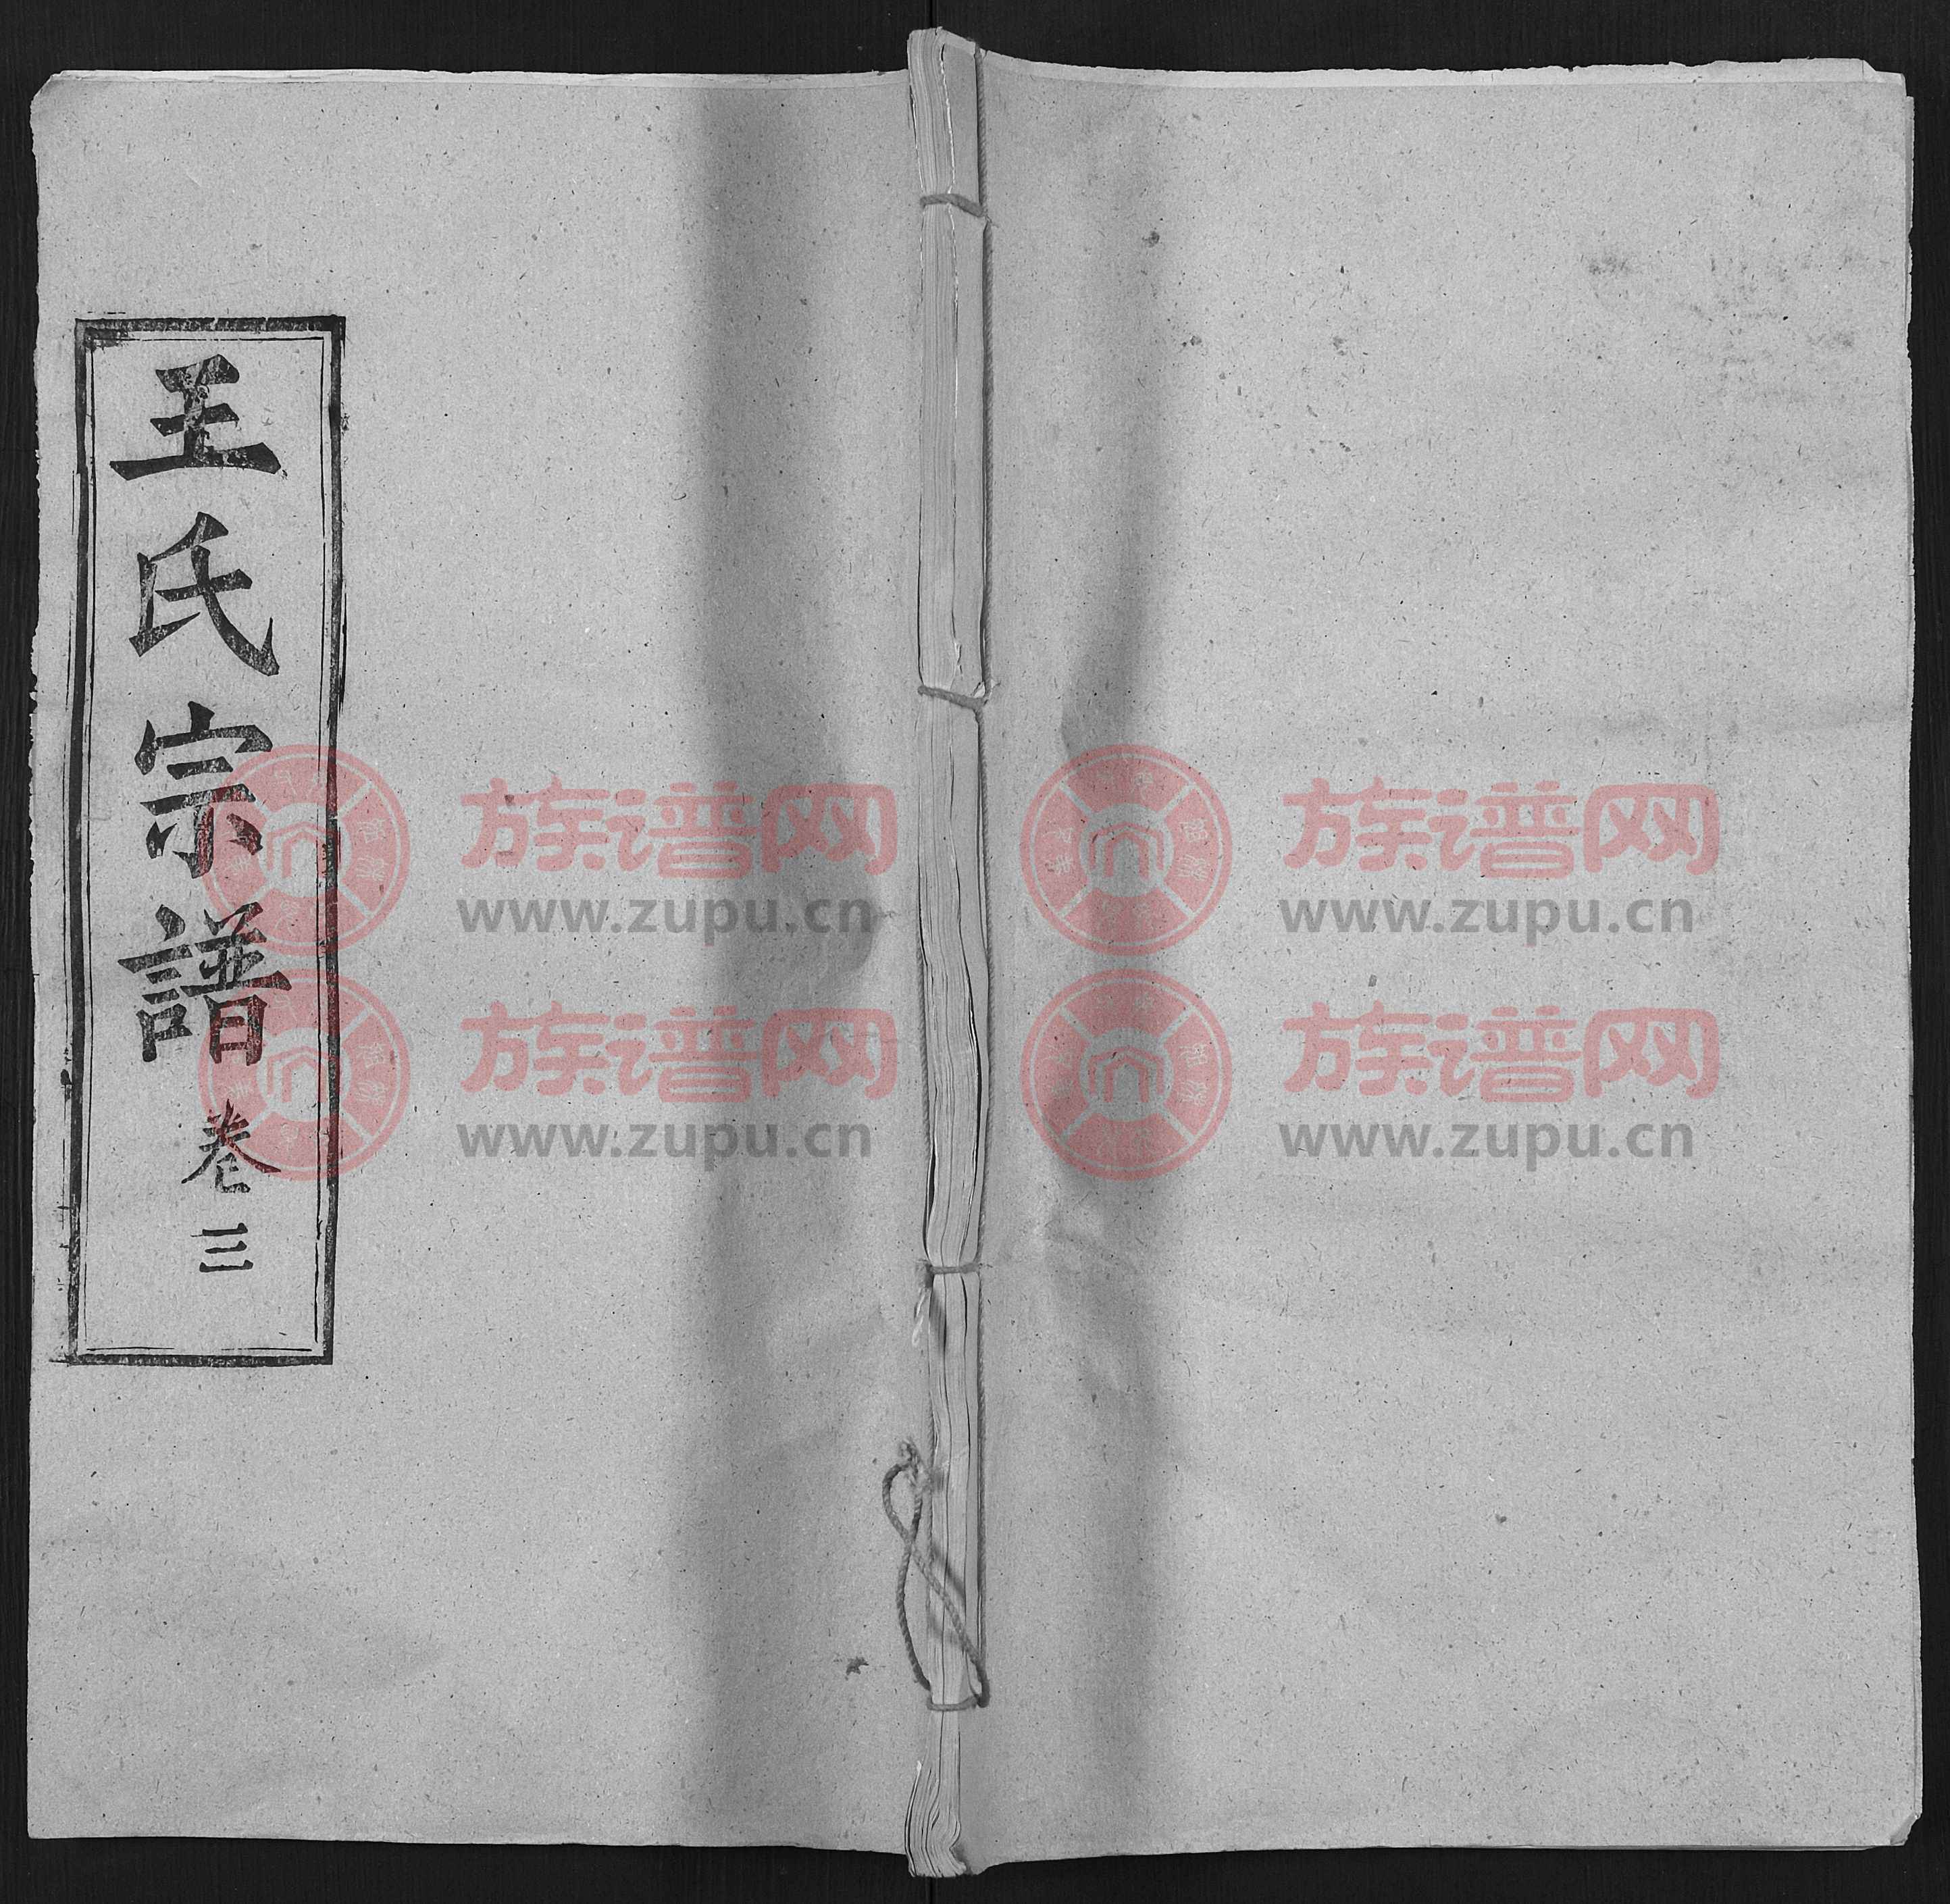 王氏宗譜 卷三
族谱网
www.zupu.cn
族谱网
www.zupu.cn
族谱网
www.zupu.cn
族谱网
www.zupu.cn